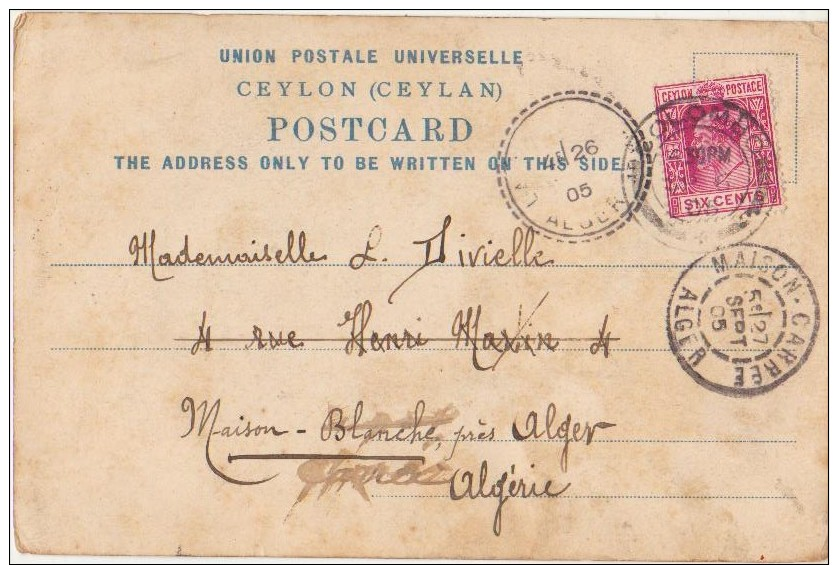 UNION POSTALE UNIVERSELLE
CEYLON (CEYLAN)
POSTCARD
THE ADDRESS ONLY TO BE WRITTEN ON THIS SIDE
CEYLON POSTAGE
SIX CENTS
PM
26
05
ALGER
MAISON-CARRÉE
27
SEPT
05
ALGER
Mademoiselle L. Divielle
4 rue Henri Maxin 4
Maison-Blanche, près Alger
Algérie